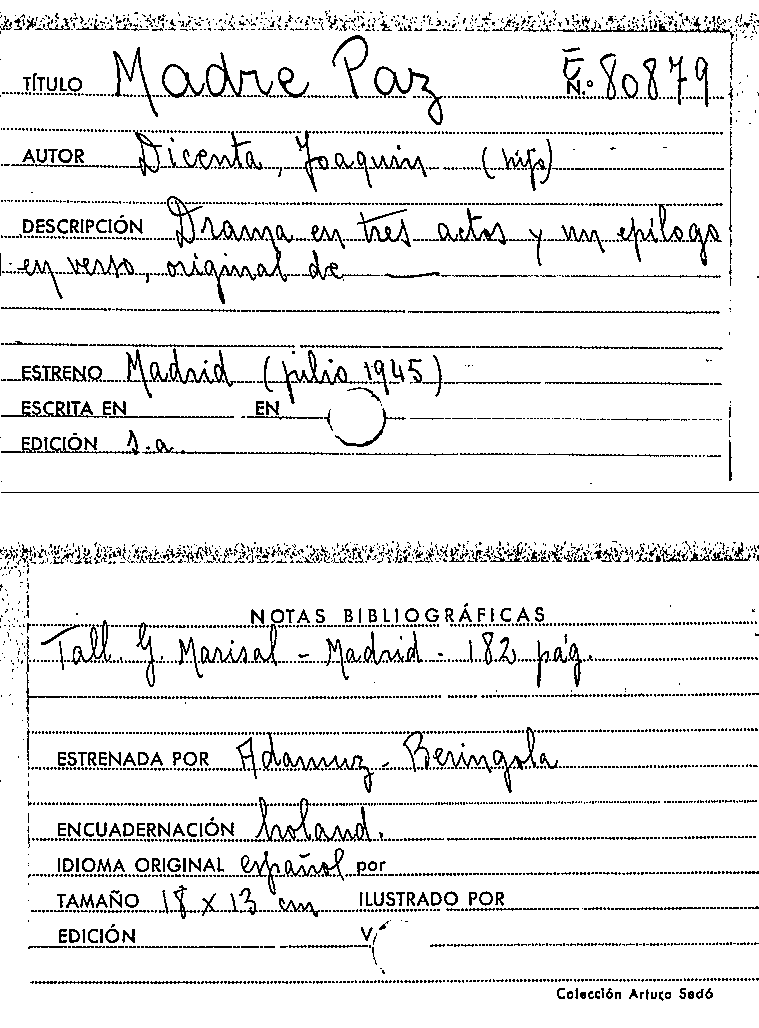 TÍTULO Madre Paz N.º 80879
AUTOR Dicenta, Joaquín (hijo)
DESCRIPCIÓN Drama en tres actos y un epílogo
en verso, original de ——
ESTRENO Madrid (julio 1945)
ESCRITA EN EN
EDICIÓN s.a.
NOTAS BIBLIOGRÁFICAS
Tall. G. Marisal - Madrid - 182 pág.
ESTRENADA POR Adamuz - Beringola
ENCUADERNACIÓN holand.
IDIOMA ORIGINAL español por
TAMAÑO 18 x 13 cm ILUSTRADO POR
EDICIÓN V
Colección Arturo Sedó